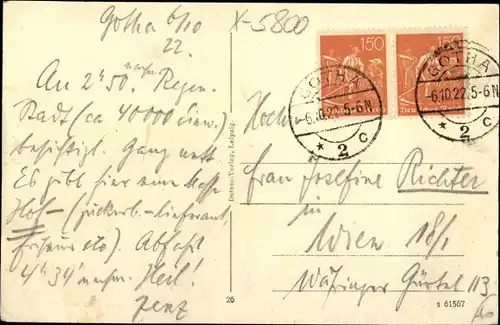 Gotha 6/10
22.
X-5800
An 2h 50' nachm. Regen.
Stadt (ca 40000 Einw.)
besichtigt. Ganz nett
Es gibt hier eine Masse
Hof- (zuckerb.-lieferant,
Friseur etc). Abfahrt
4h 34' nachm. Heil!
150
150
Deutsches
GOTHA
-6.10.22.5-6N
* 2 c
GOTHA
-6.10.22.5-6N
* 2 c
Hoch
Frau Josefine Richter
in
Wien 18/1
Währinger Gürtel 113
Verlag, Leipzig.
26
s 61567